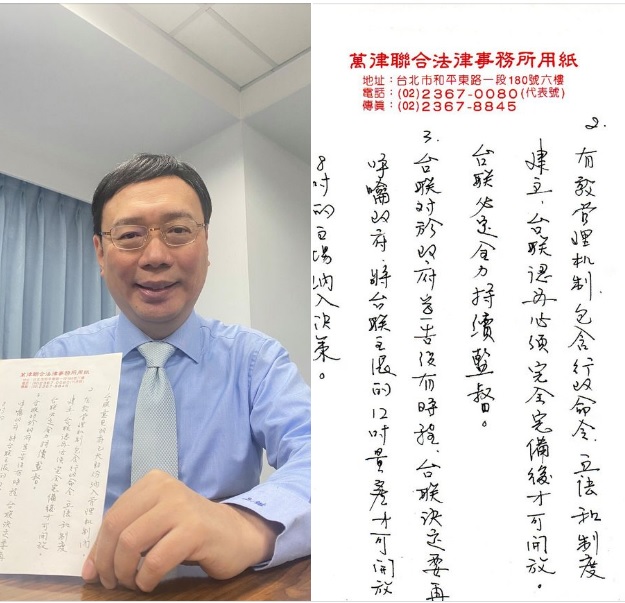 萬律聯合法律事務所用紙
萬律聯合法律事務所用紙
地址：台北市和平東路一段180號六樓
電話：(02)2367-0080(代表號)
傳真：(02)2367-8845
2. 有效管理机制,包含行政命令、立法和制度
建立,台聯認為必須完全完備後才可開放。
台聯必定全力持續監督。
3. 台聯对於政府宣告没有時程,台聯決定要再
呼籲政府,將台聯主張的12吋量產才可開放
8吋的立場納入決策。